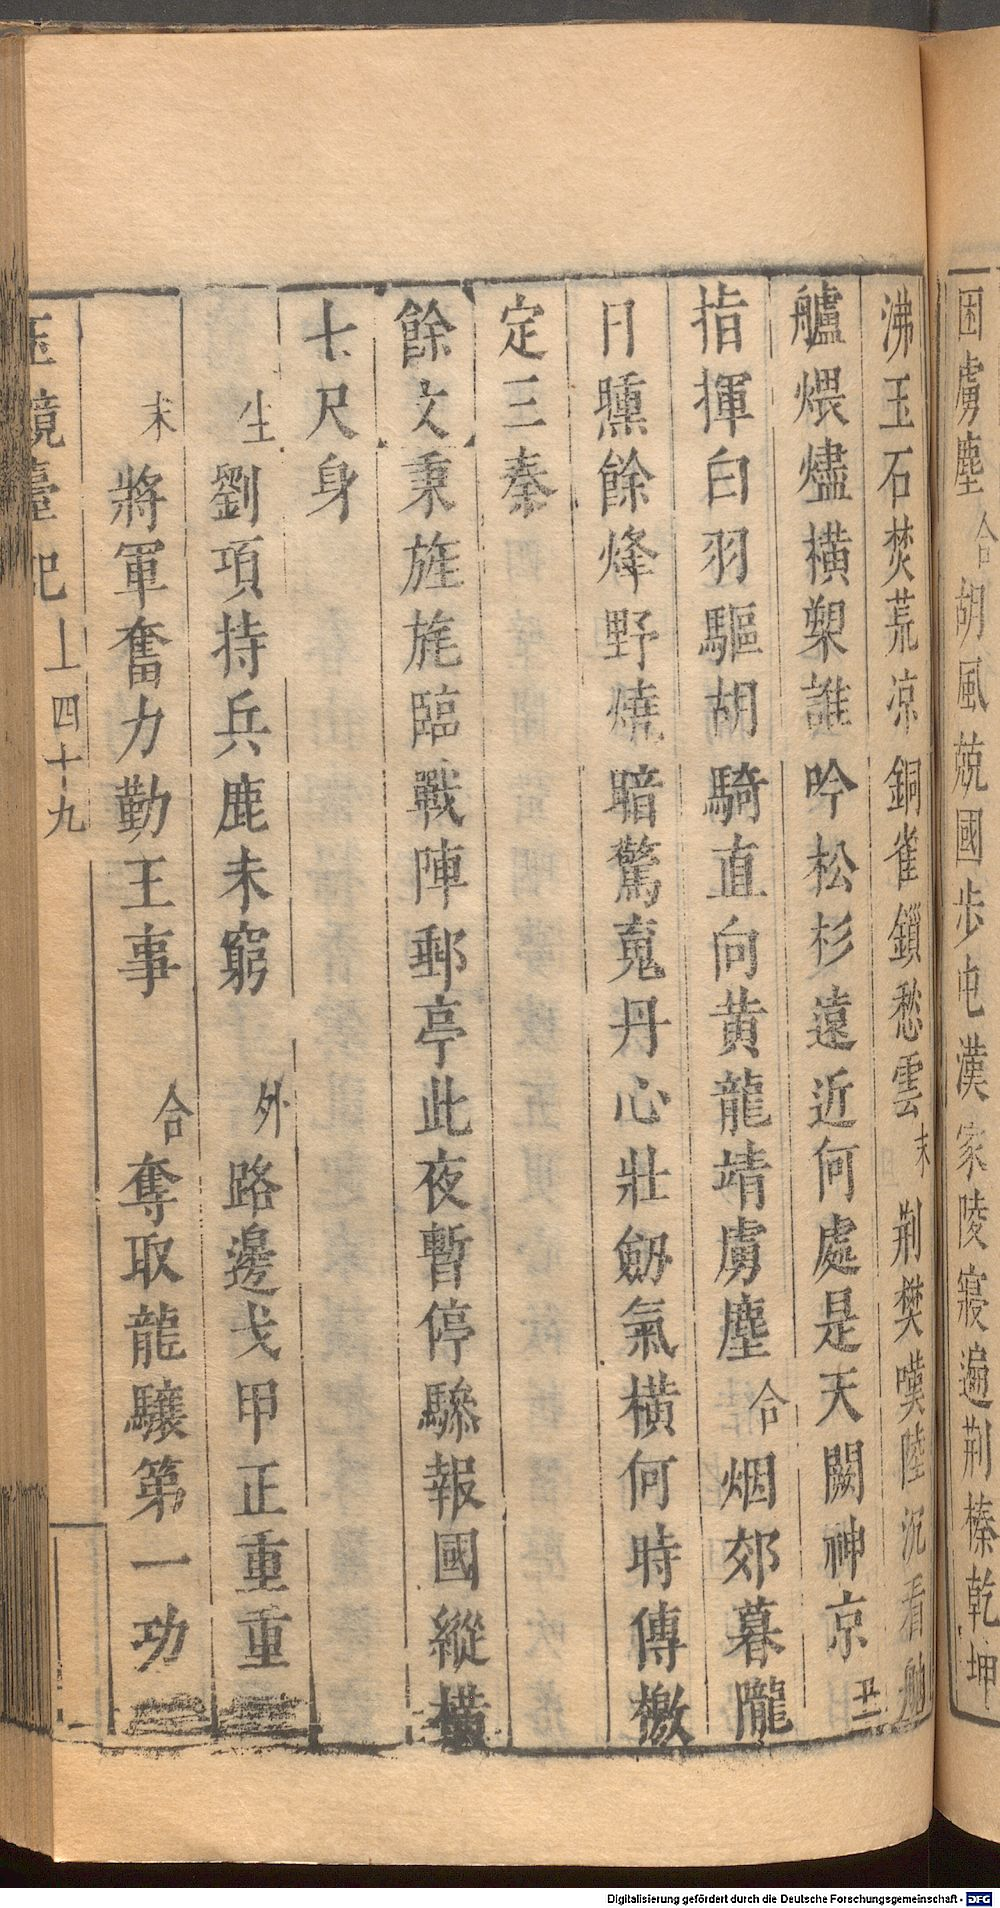 困虜塵合胡風兢國步屯漢家陵寢遍荆榛乾坤
沸玉石焚荒凉銅雀鎖愁雲末荆樊嘆陸沉看舳
艫煨燼橫槊誰吟松杉遠近何處是天闕神京
指揮白羽驅胡騎直向黃龍靖虜塵合烟郊暮隴
日曛餘烽野燒暗驚䰟丹心壯劔氣橫何時傳檄
定三秦
餘文秉旌旄臨戰陣郵亭此夜暫停驂報國縱橫
七尺身
生劉項持兵鹿未窮外路邊戈甲正重重
末將軍奮力勤王事合奪取龍驤第一功
玉鏡臺記上四十九
Digitalisierung gefördert durch die Deutsche Forschungsgemeinschaft - DFG